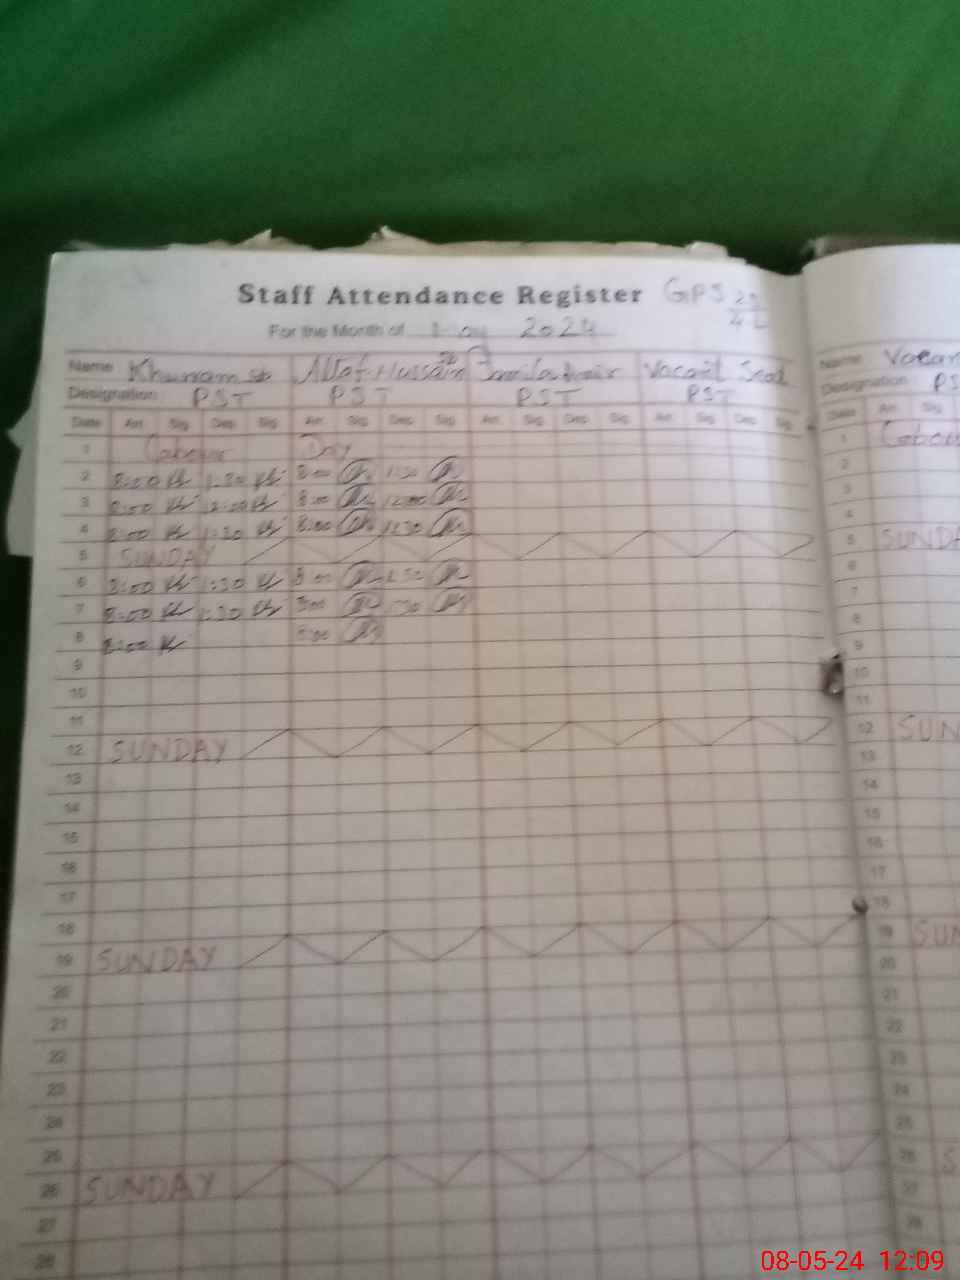 Staff Attendance Register GPS
For the Month of May 2024
Name Khurram sb Altaf Hussain sb Vacant Seat
Designation PST PST PST PST
Date Arr. Sig. Dep. Sig. Arr. Sig. Dep. Sig. Arr. Sig. Dep. Sig. Arr. Sig. Dep. Sig.
1 Labour Day
2 8:00 1:30 8:00 1:30
3 8:00 12:00 8:00 12:00
4 8:00 1:30 8:00 1:30
5 SUNDAY
6 8:00 1:30 8:00 1:30
7 8:00 1:30 8:00 1:30
8 8:00 8:00
9
10
11
12 SUNDAY
13
14
15
16
17
18
19 SUNDAY
20
21
22
23
24
25
26 SUNDAY
27
28
Name
Designation PS
Date Arr. Sig.
1 Labou
2
3
4
5 SUNDA
6
7
8
9
10
11
12 SUN
13
14
15
16
17
18
19 SUN
20
21
22
23
24
25
26 S
27
28
08-05-24 12:09